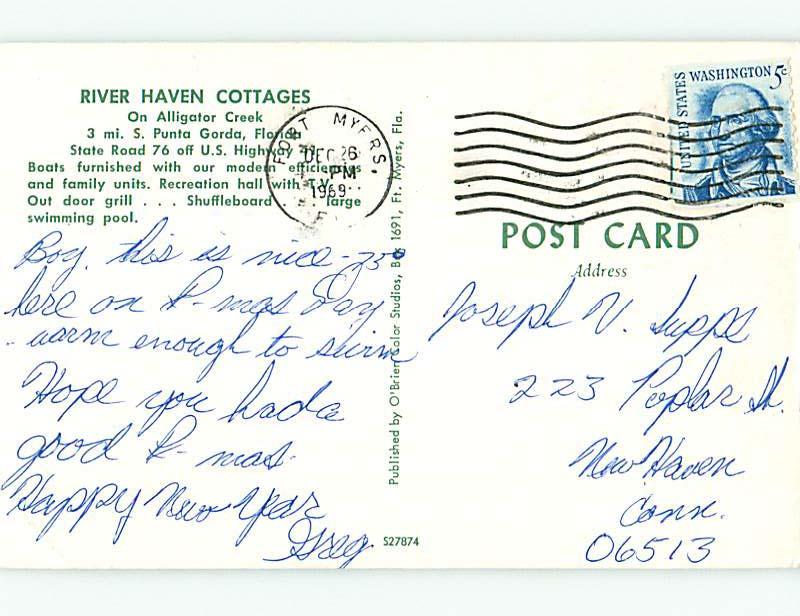 RIVER HAVEN COTTAGES
On Alligator Creek
3 mi. S. Punta Gorda, Florida
State Road 76 off U.S. Highway
Boats furnished with our modern efficiencies
and family units. Recreation hall with T.V. . .
Out door grill . . . Shuffleboard large
swimming pool.
Boy, this is nice - 75°
here on X-mas Day
- warm enough to swim
Hope you had a
good X-mas.
Happy New Year
Greg
Published by O'Brien Color Studios, Box 1691, Ft. Myers, Fla.
S27874
FORT MYERS,
DEC 26
PM
1969
UNITED STATES
WASHINGTON 5c
POST CARD
Address
Joseph V. Supps
223 Poplar St.
New Haven
Conn.
06513